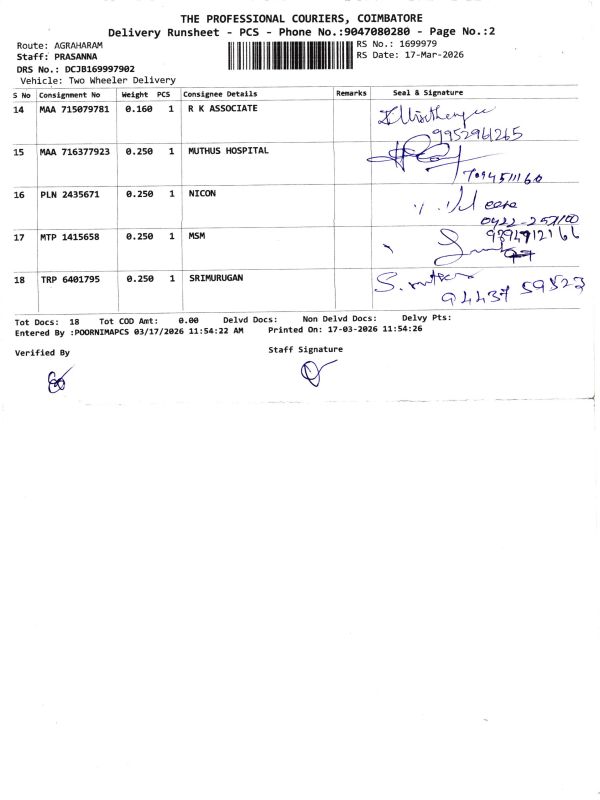 THE PROFESSIONAL COURIERS, COIMBATORE
Delivery Runsheet - PCS - Phone No.:9047080280 - Page No.:2
Route: AGRAHARAM
RS No.: 1699979
Staff: PRASANNA
RS Date: 17-Mar-2026
DRS No.: DCJB169997902
Vehicle: Two Wheeler Delivery
S No Consignment No Weight PCS Consignee Details Remarks Seal & Signature
14 MAA 715079781 0.160 1 R K ASSOCIATE
9952961265
15 MAA 716377923 0.250 1 MUTHUS HOSPITAL
16 PLN 2435671 0.250 1 NICON
care
17 MTP 1415658 0.250 1 MSM
18 TRP 6401795 0.250 1 SRIMURUGAN
94437 59523
Tot Docs: 18 Tot COD Amt: 0.00 Delvd Docs: Non Delvd Docs: Delvy Pts:
Entered By :POORNIMAPCS 03/17/2026 11:54:22 AM Printed On: 17-03-2026 11:54:26
Verified By Staff Signature